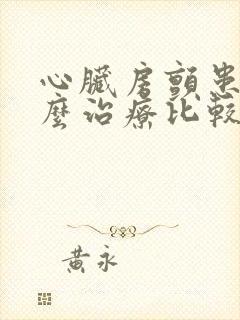 心臟房顫患
麼治療比較
黃永